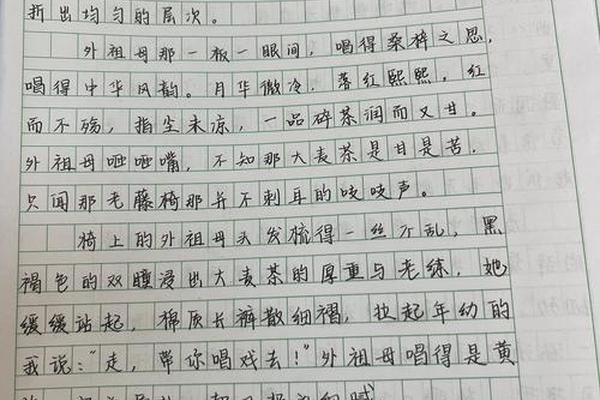 折出均匀的层次。
外祖母那一板一眼间，唱得桑梓之思，
唱得中华风韵。月华微冷，落红熙熙，红
而不殇，指尘未凉，一品碎茶润而又甘。
外祖母咂咂嘴，不知那大麦茶是甘是苦，
只闻那老藤椅那并不刺耳的吱吱声。
椅上的外祖母头发梳得一丝不乱，黑
褐色的双瞳浸出大麦茶的厚重与老练，她
缓缓站起，棉质长裤散细褶，拉起年幼的
我说：“走，带你唱戏去！”外祖母唱得是黄